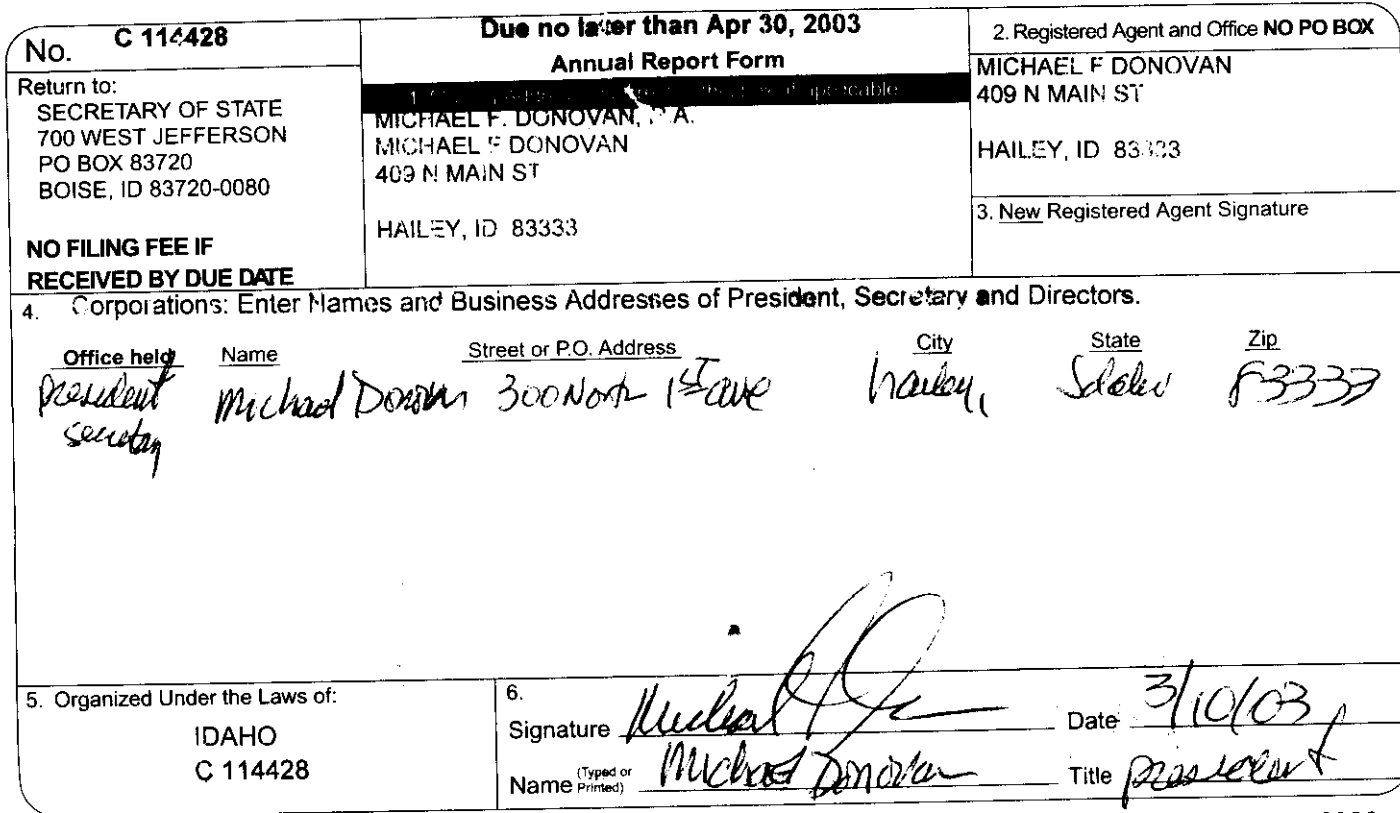 No. C 114428
Return to:
SECRETARY OF STATE
700 WEST JEFFERSON
PO BOX 83720
BOISE, ID 83720-0080
NO FILING FEE IF
RECEIVED BY DUE DATE
Due no later than Apr 30, 2003
Annual Report Form
MICHAEL F. DONOVAN, P.A.
MICHAEL F DONOVAN
409 N MAIN ST
HAILEY, ID 83333
2. Registered Agent and Office NO PO BOX
MICHAEL F DONOVAN
409 N MAIN ST
HAILEY, ID 83333
3. New Registered Agent Signature
4. Corporations: Enter Names and Business Addresses of President, Secretary and Directors.
Office held Name Street or P.O. Address City State Zip
President Michael Donovan 300 North 1st ave hailey, Idaho 83333
secretary
5. Organized Under the Laws of:
IDAHO
C 114428
6.
Signature Michael Date 3/10/03
Name (Typed or Printed) Michael Donovan Title president